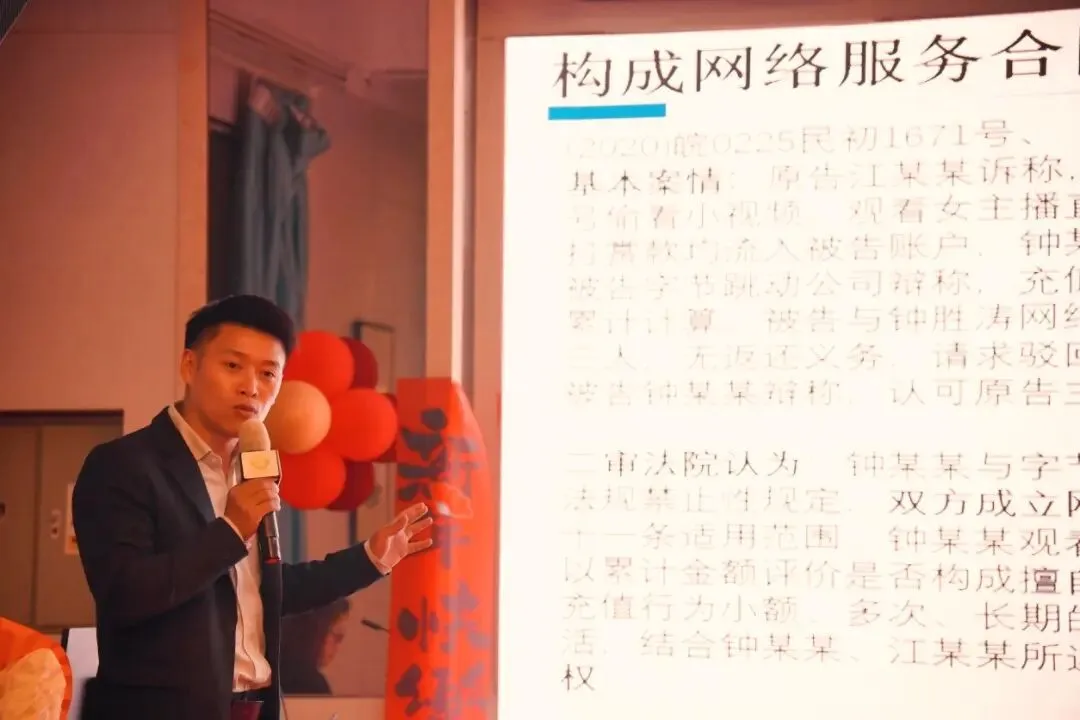 构成网络服务合
(2020)皖0225民初1671号、
基本案情：原告江某某诉称，
号偷看小视频、观看女主播直
打赏款均流入被告账户，钟某
被告字节跳动公司辩称，充值
累计计算，被告与钟胜涛网络
三人，无返还义务，请求驳回
被告钟某某辩称，认可原告主
二审法院认为，钟某某与字节
法规禁止性规定，双方成立网
十一条适用范围，钟某某观看
以累计金额评价是否构成擅自
充值行为小额、多次、长期的
活，结合钟某某、江某某所述
权
新年快乐